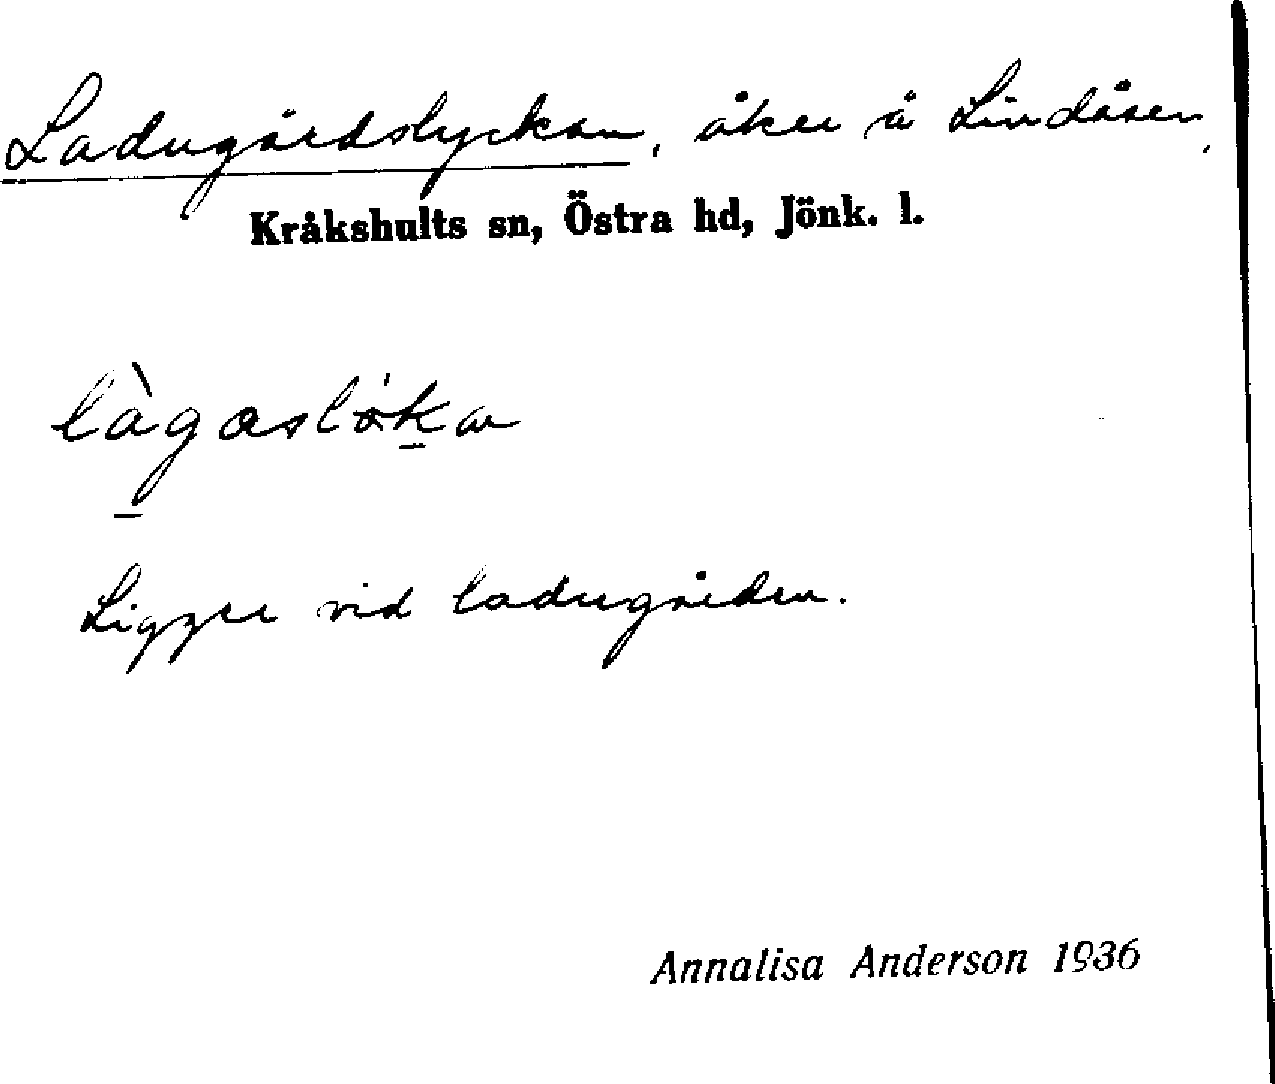 Ladugårdslyckan, åker å Lindåsen,
Kråkshults sn, Östra hd, Jönk. l.
Ligger vid ladugården.
Annalisa Anderson 1936